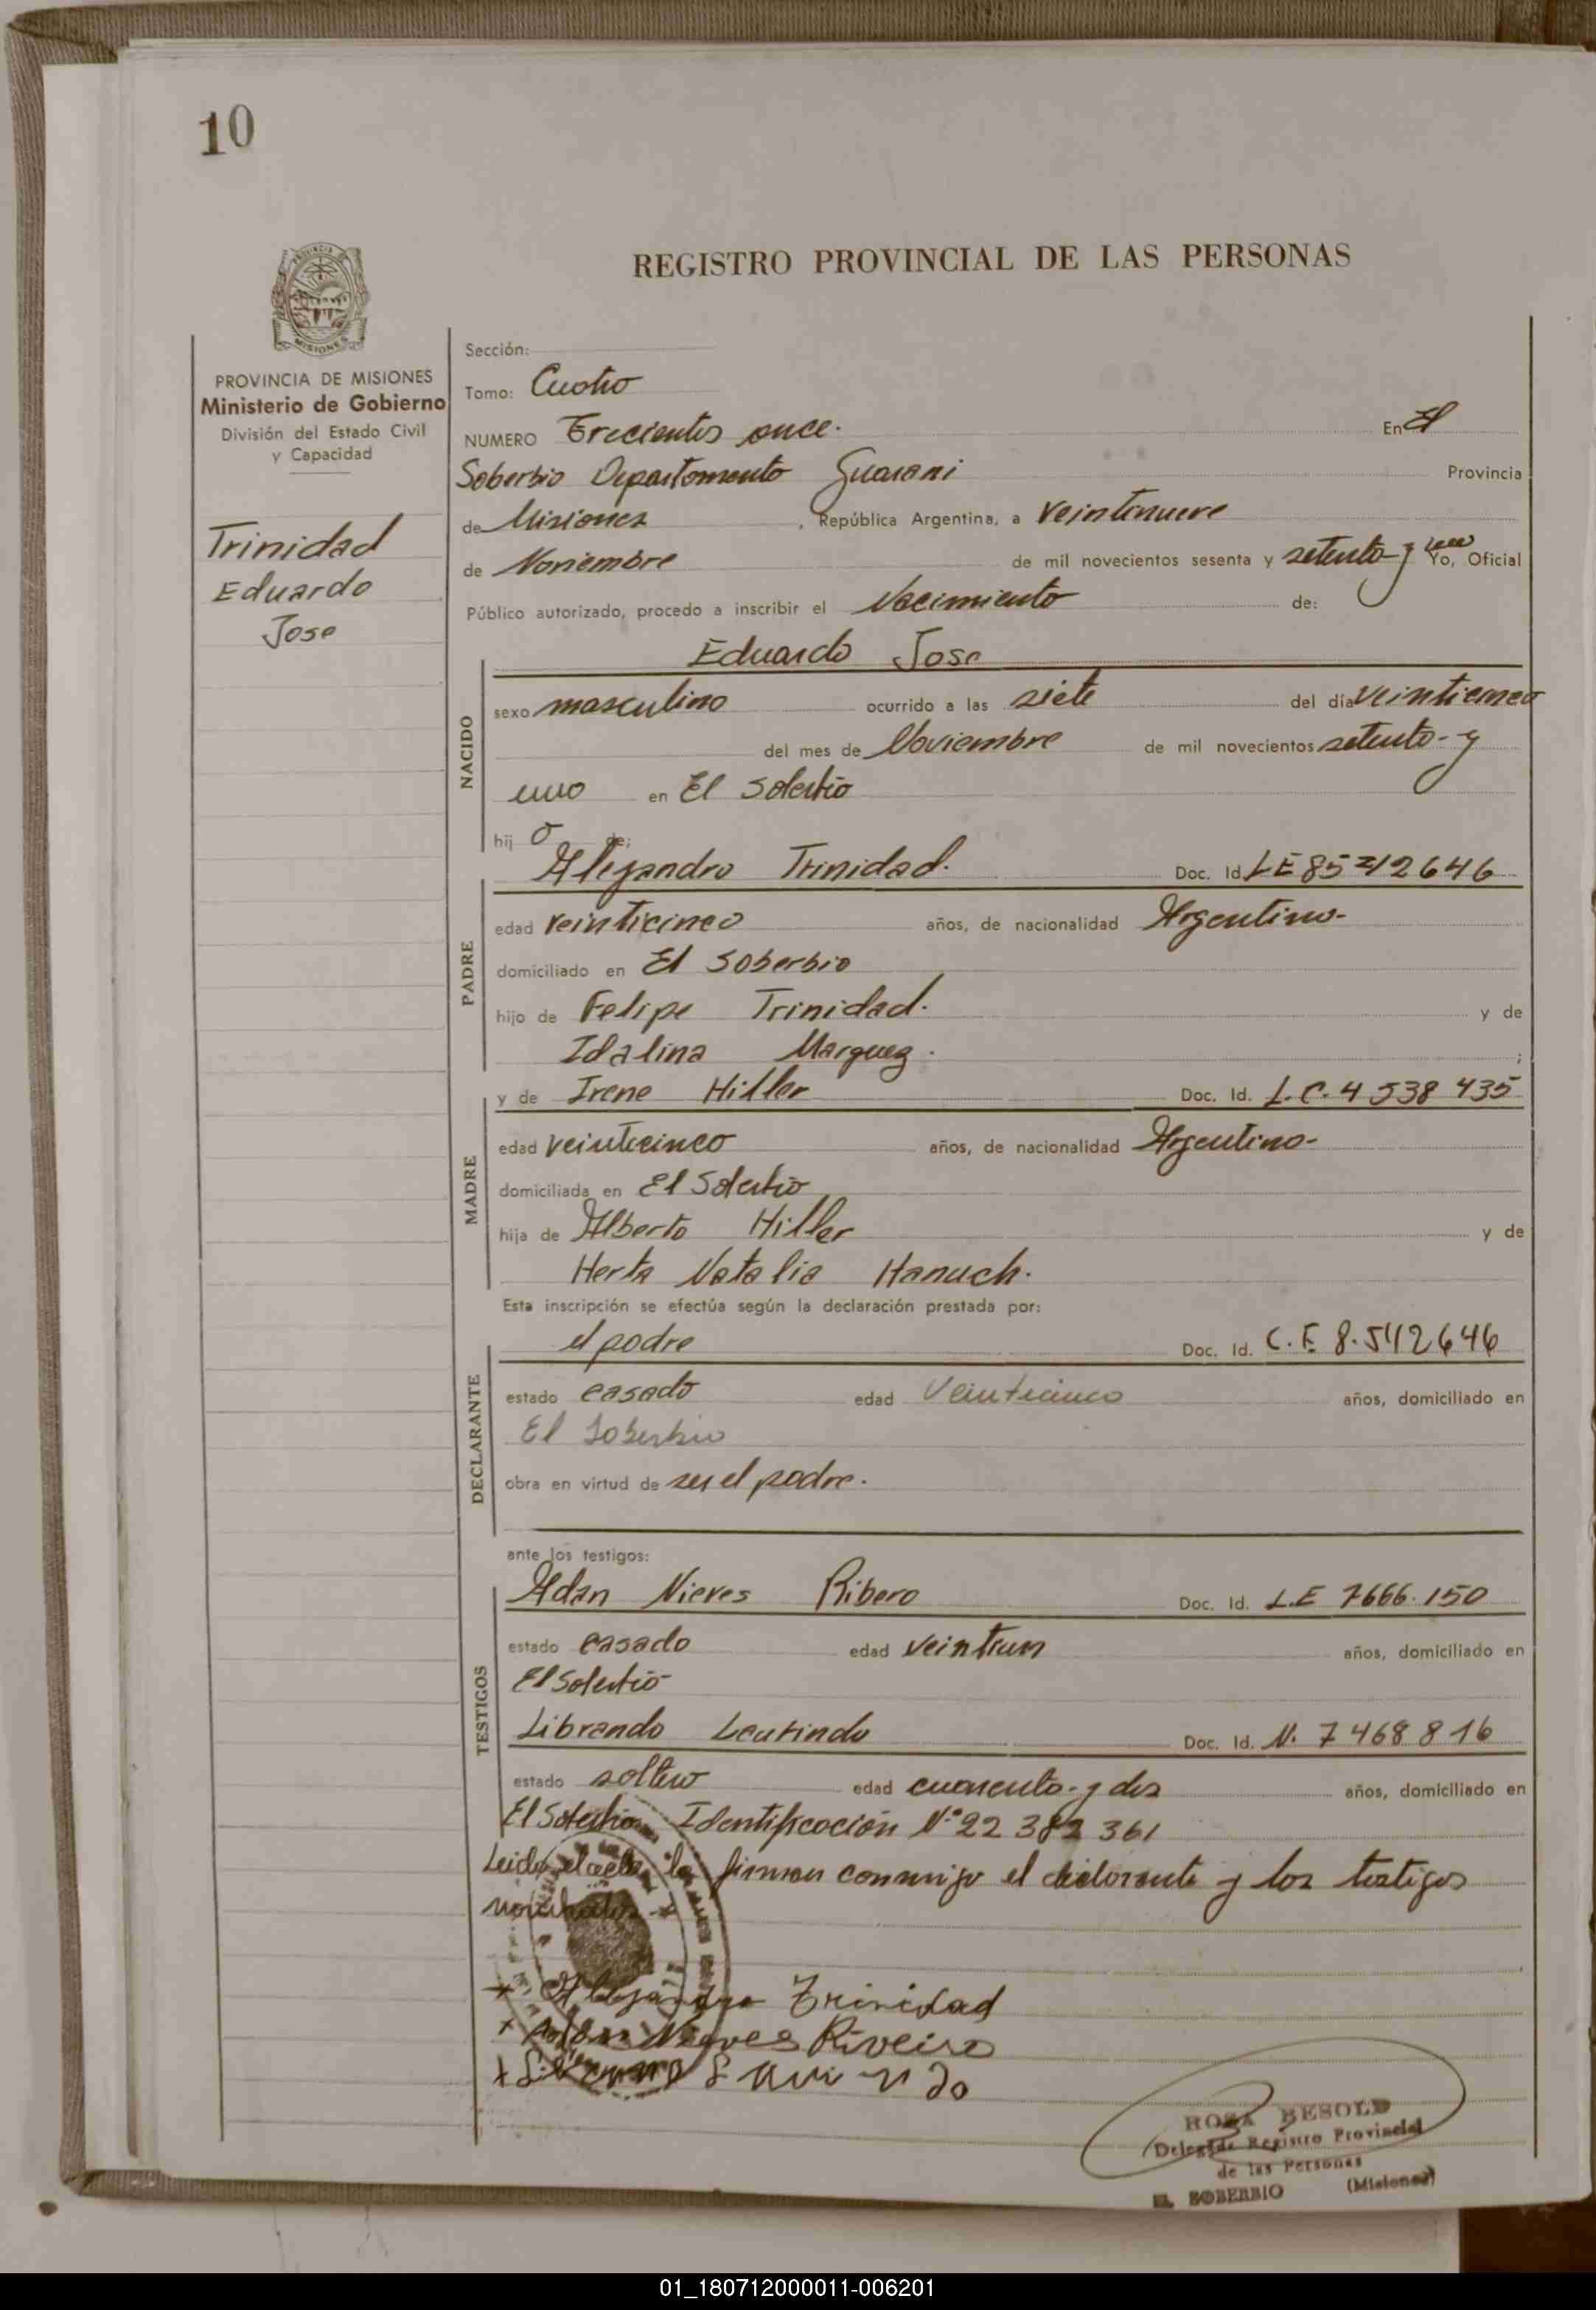 10
REGISTRO PROVINCIAL DE LAS PERSONAS
PROVINCIA DE MISIONES
Ministerio de Gobierno
División del Estado Civil
y Capacidad
Trinidad
Eduardo
Jose
Sección:
Tomo: Cuatro
NUMERO Trecientos once. En El
Soberbio Departamento Guarani Provincia
de Misiones, República Argentina, a veintinueve
de Noviembre de mil novecientos sesenta y setenta y uno Yo, Oficial
Público autorizado, procedo a inscribir el Nacimiento de:
NACIDO
Eduardo Jose
sexo masculino ocurrido a las siete del día veinticinco
del mes de Noviembre de mil novecientos setenta- y
uno en El Soberbio
hij o de:
PADRE
Alejandro Trinidad. Doc. Id. LE 8542646
edad veinticinco años, de nacionalidad Argentino-
domiciliado en El Soberbio
hijo de Felipe Trinidad. y de
Idalina Marquez. ;
MADRE
y de Irene Hiller Doc. Id. L.C. 4 538 435
edad veinticinco años, de nacionalidad Argentina-
domiciliada en El Soberbio
hija de Alberto Hiller y de
Herta Natalia Hanuch.
Esta inscripción se efectúa según la declaración prestada por:
DECLARANTE
el padre Doc. Id. C.E. 8.542646
estado casado edad veinticinco años, domiciliado en
El Soberbio
obra en virtud de ser el padre.
ante los testigos:
TESTIGOS
Adan Nieves Ribero Doc. Id. L.E 7666.150
estado casado edad veintiun años, domiciliado en
El Soberbio
Librando Leurindo Doc. Id. N. 7468816
estado soltero edad cuarenta- y dos años, domiciliado en
El Soberbio Identificación N° 22 382 361
Leida el acta la firman conmigo el declarante y los testigos
Alejandro Trinidad
Adan Nieves Riveiro
ROSA BESOLD
Delegada Registro Provincial
de las Personas
EL SOBERBIO (Misiones)
01_180712000011-006201